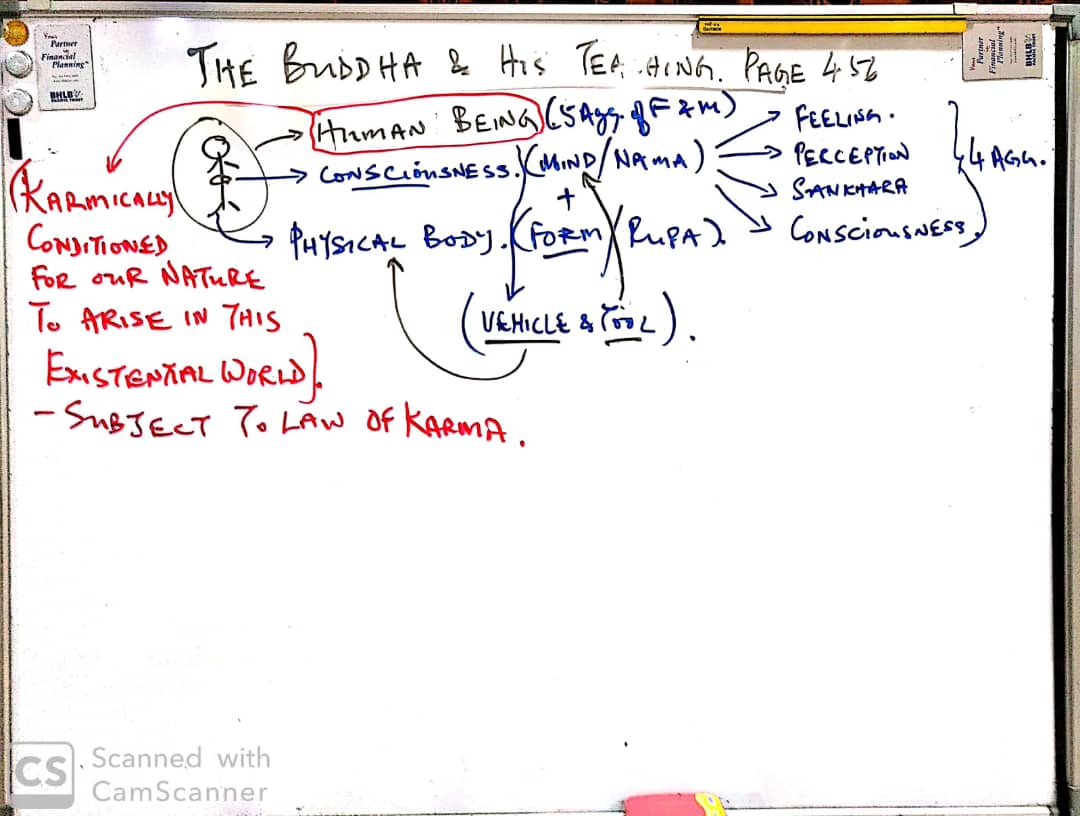 Your
Partner
in
Financial
Planning
BHLB
Your
Partner
in
Financial
Planning
BHLB
THE BUDDHA & HIS TEA HING. PAGE 456
(HUMAN BEING) (5 Agg. of F & M)
CONSCIOUSNESS. (MIND/NAMA)
+
PHYSICAL BODY. (FORM/RUPA)
(VEHICLE & TOOL).
FEELING.
PERCEPTION
SANKHARA
CONSCIOUSNESS
4 AGG.
(KARMICALLY
CONDITIONED
FOR OUR NATURE
TO ARISE IN THIS
EXISTENTIAL WORLD).
- SUBJECT TO LAW OF KARMA.
CS Scanned with
CamScanner